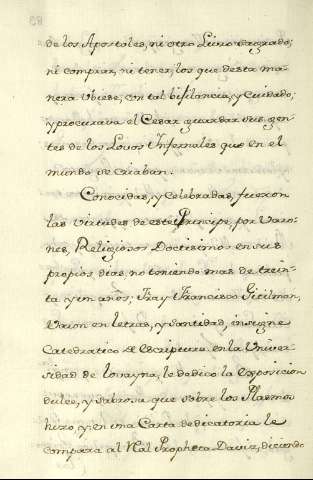 de los Apostoles, ni otro Livro sagrado;
ni comprar, ni tener, los que desta ma-
nera ubiese, con tal bijilancia, y Cuidado,
y procurava el Cesar guardar sus gen-
tes de los Lovos Infernales que en el
mundo se criaban.
Conocidas, y Celebradas, fueron
las virtudes de este Principe, por Varo-
nes, Religiosos Doctisimos en sus
propios dias, no teniendo mas de trein-
ta y un años; Fray Francisco
Varon en letras, y Santidad, insigne
Catedratico de Escriptura en la Univer-
sidad de Lovayna, le dedico la exposicion
dulce, y sabrosa que sobre los Psalmos
hizo y en una Carta dedicatoria le
compara al Real Propheta David, diciendo